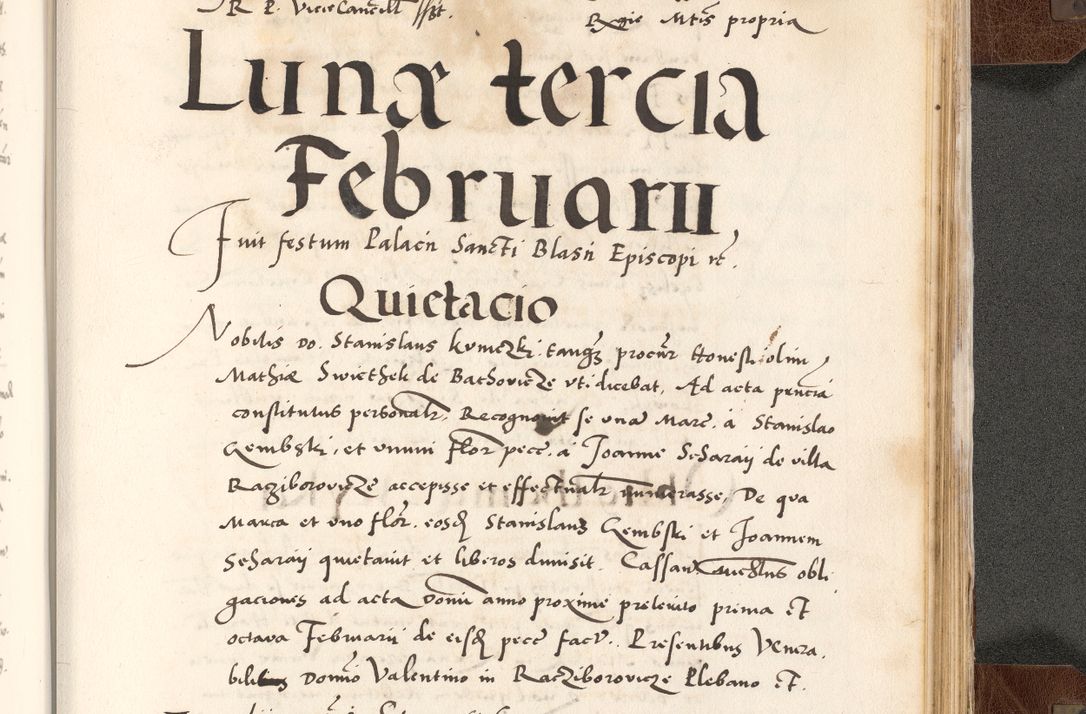 R P. ViceCancell sspt.
Regie Mtis propria
Lunæ tercia
Februarii,
Fuit festum Palacii Sancti Blasii Episcopi rc.
Quietacio
Nobilis Do. Stanislaus tanq procur Honesti olim
Mathiæ Swicthek de Bathovicze uti dicebat, Ad acta pnncia
constitutus personalr, Recognovit se una Marc. a Stanislao
Gembski, et unum flor pecc. a Joanne Scharaii de villa
Racziborovicze accepisse et effectualr numerasse, De qua
Marca et uno flor. eosd Stanislaus Gembski et Joannem
Scharaii quietavit et liberos dimisit. Cassan obli
gaciones ad acta Domi anno proxime preterito prima et
octava Februarii de eisd pecc fact. Presentibus Venera.
bilibus Domino Valentino in Racziborovicze Plebano et.